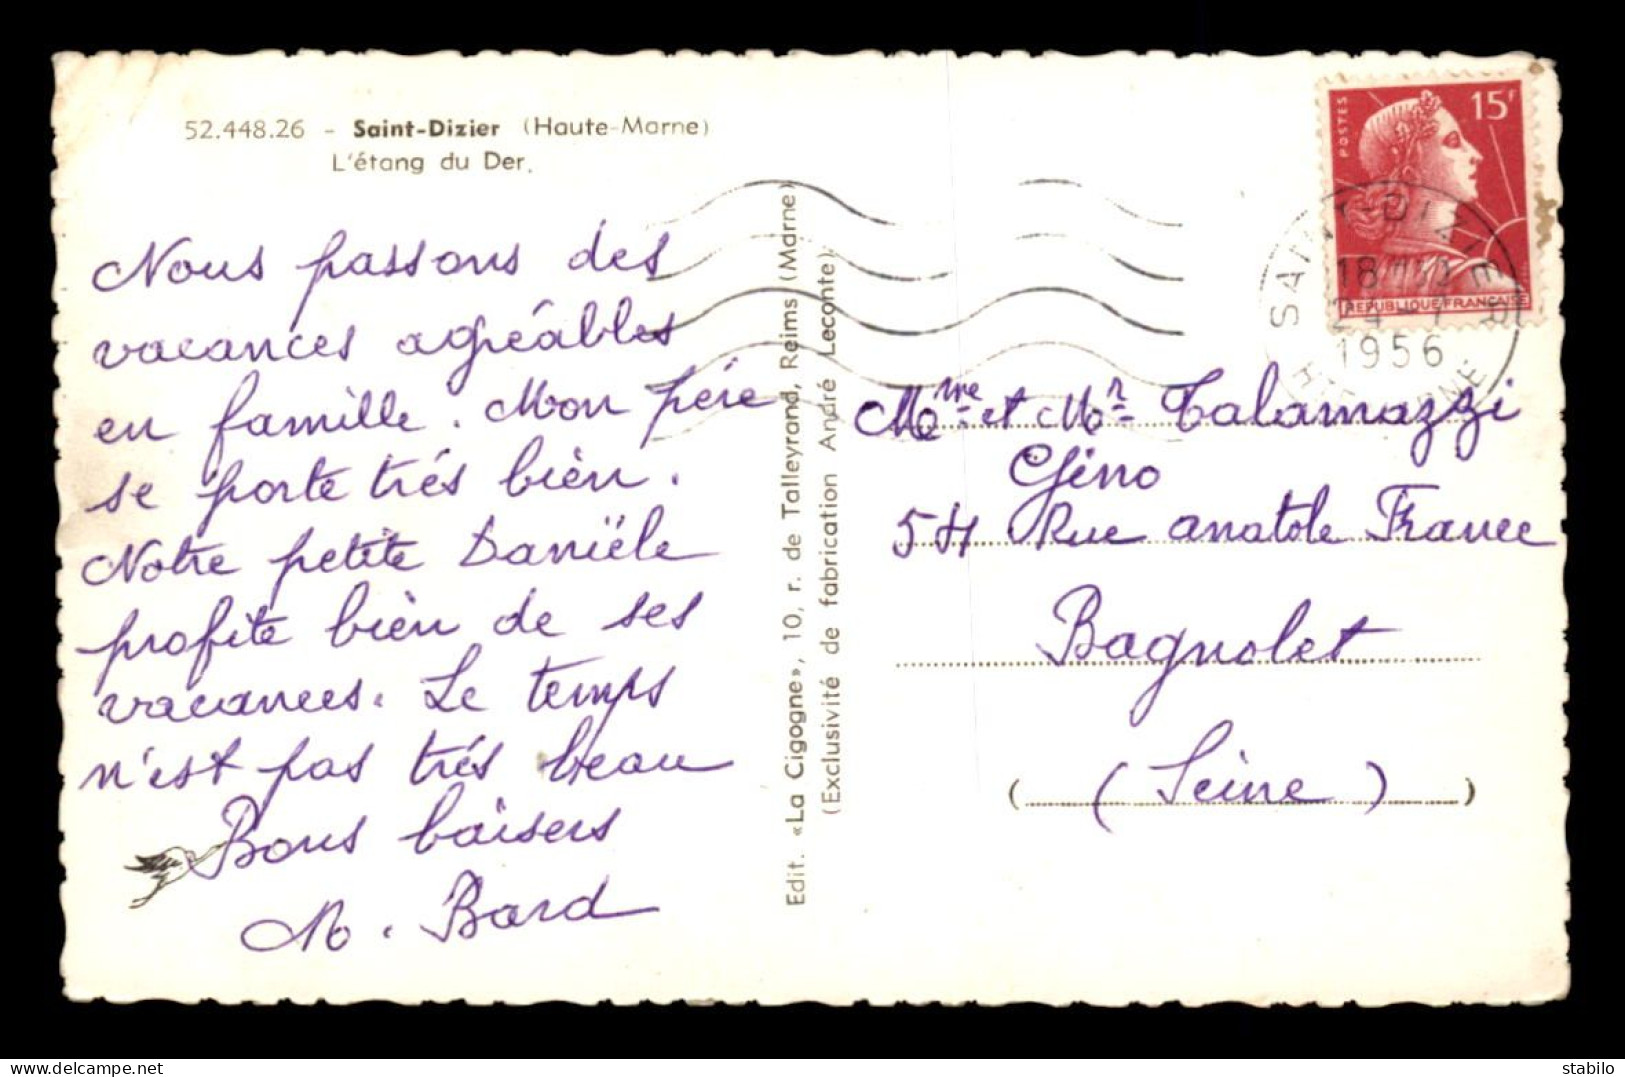 52.448.26 - Saint-Dizier (Haute-Marne)
L'étang du Der.
Nous passons des
vacances agréables
en famille. Mon père
se porte trés bien.
Notre petite Danièle
profite bien de ses
vacances. Le temps
n'est pas trés beau
Bons baisers
M. Bard
Edit. «La Cigogne», 10, r. de Talleyrand, Reims (Marne)
(Exclusivité de fabrication André Leconte)
POSTES
15F
REPUBLIQUE FRANCAISE
SAINT DIZIER
18
1956
HTE MARNE
Mme et Mr Talamazzi
Gino
54 Rue anatole France
Bagnolet
(Seine)
delcampe.net
stabilo